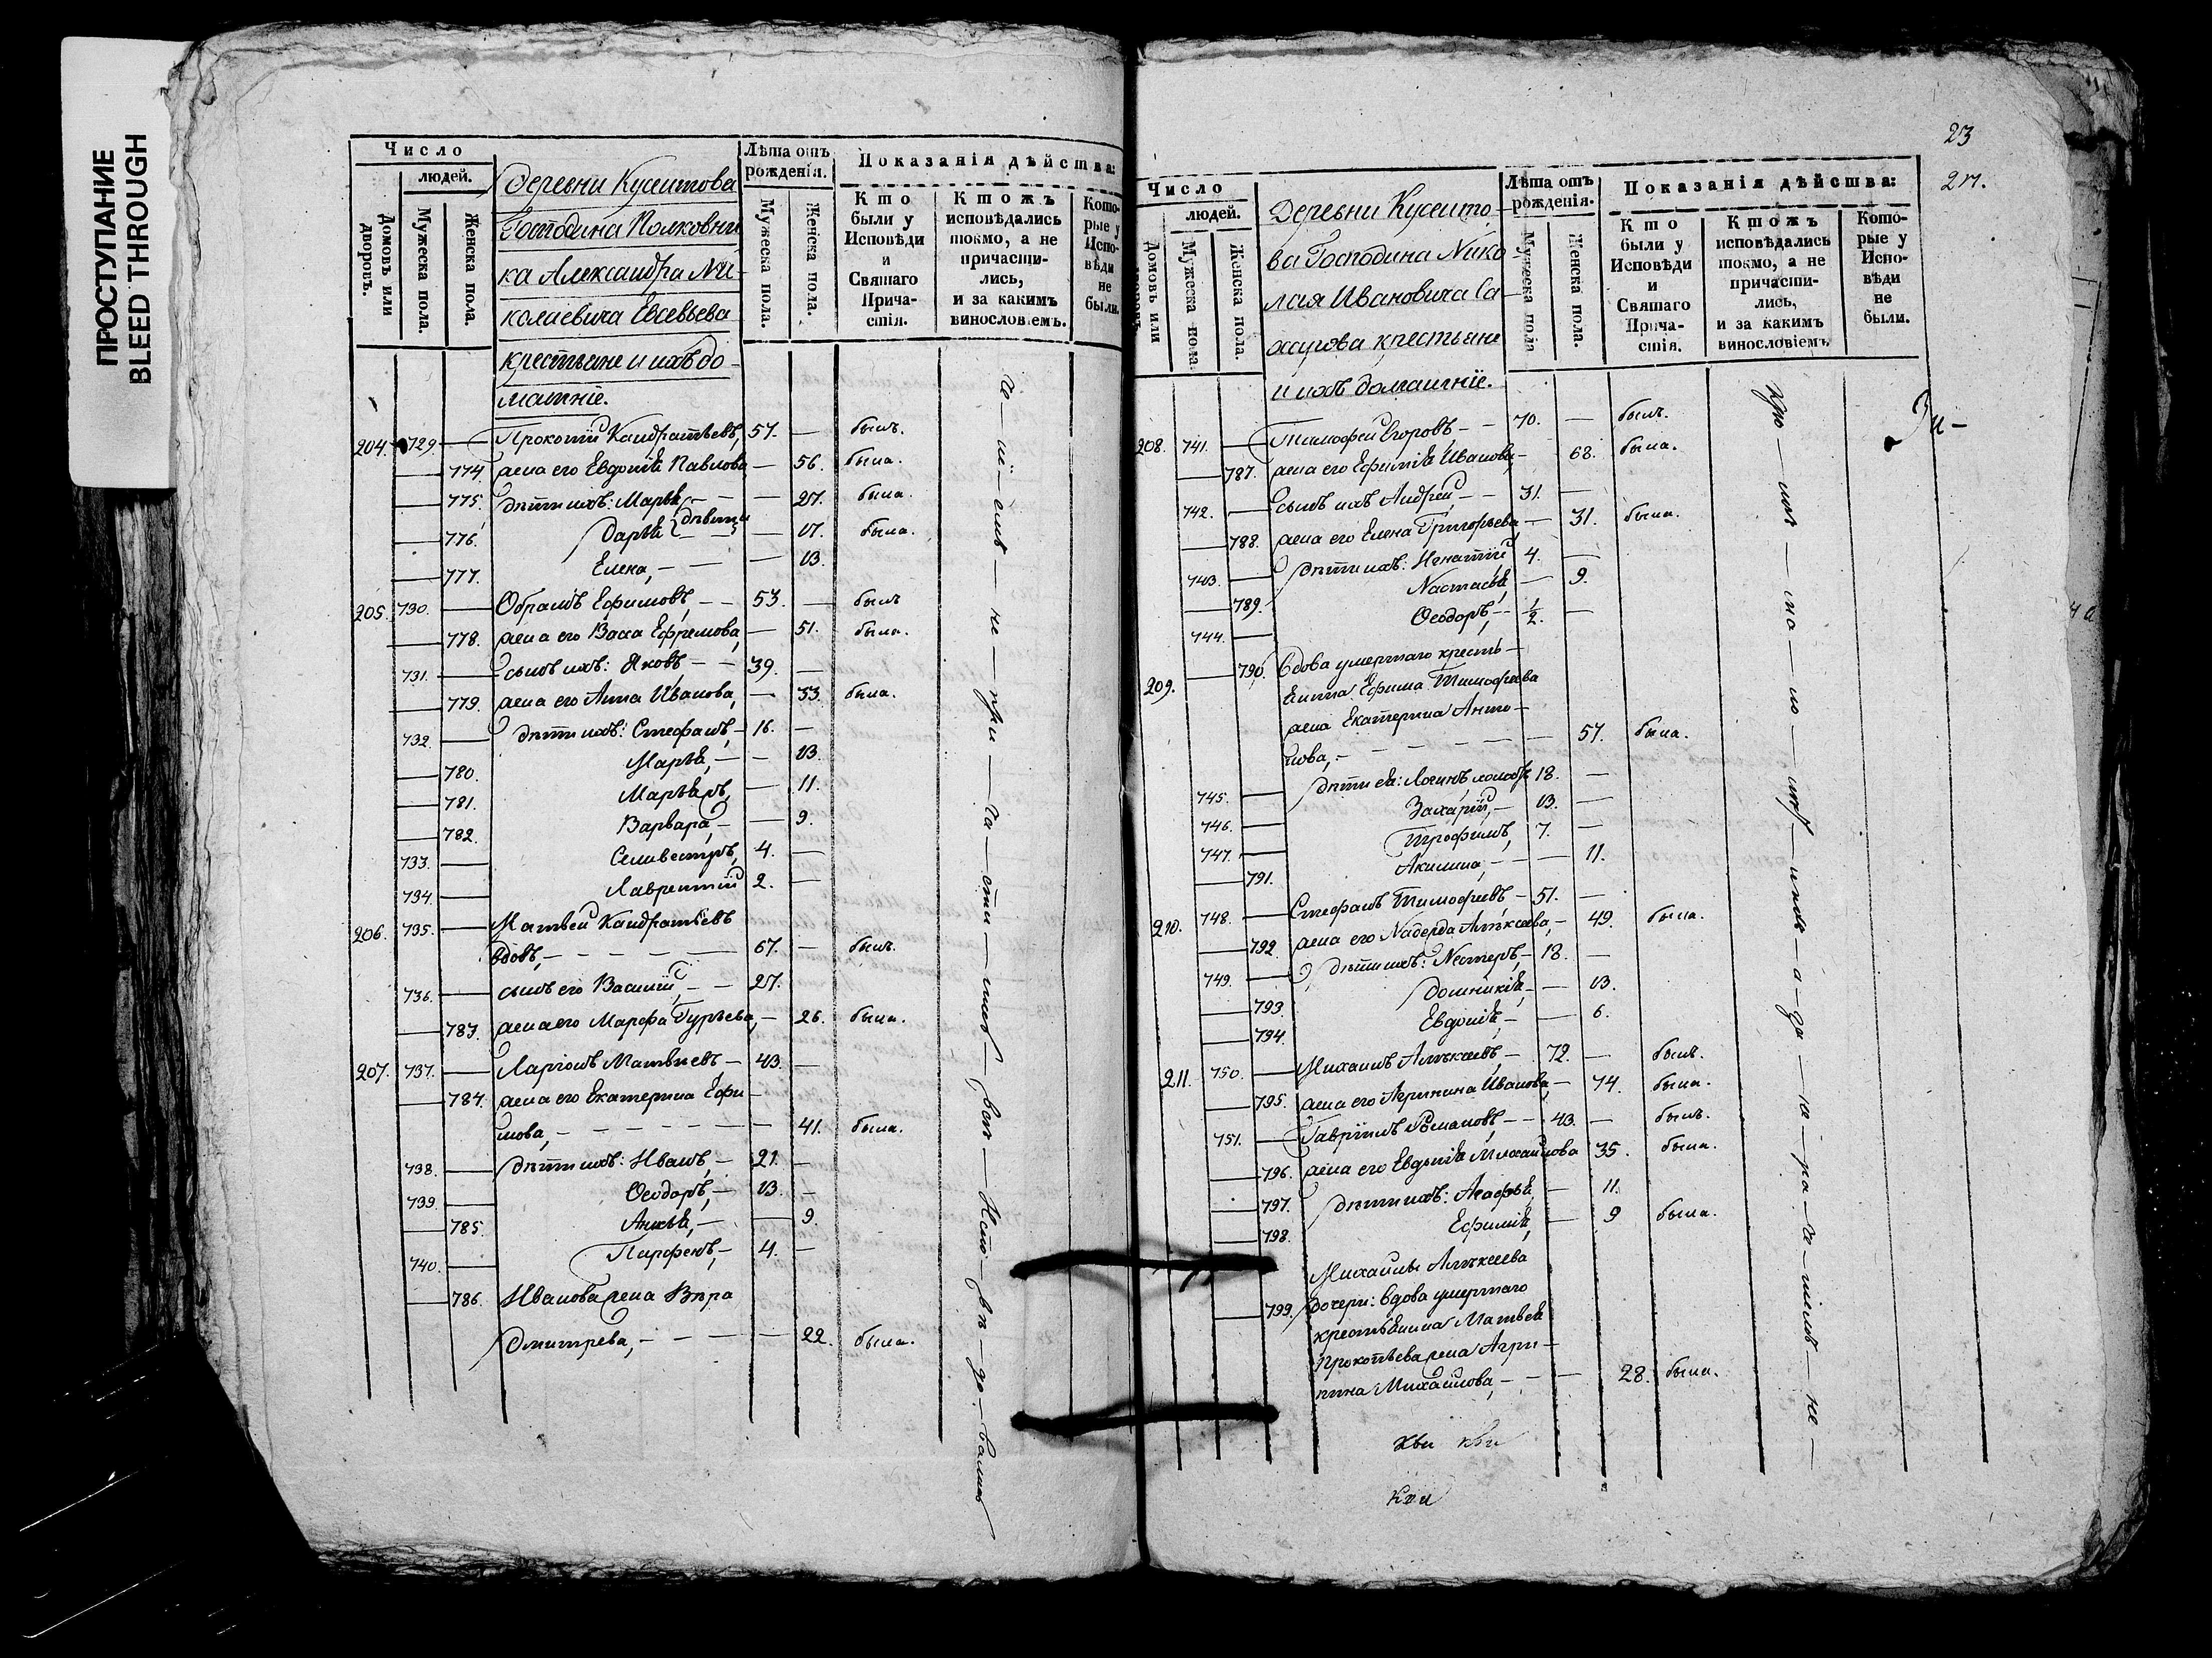 ПРОСТУПАНИЕ
BLEED THROUGH
Число
людей.
Домовъ или дворовъ.
Мужеска пола.
Женска пола.
Деревни Кусеитова
Господина Полковни
ка Александра Ни-
колаевича Евсевьева
крестьяне и ихъ до-
машніе.
Лѣта отъ рожденія.
Мужеска пола.
Женска пола.
Показанія дѣйства:
Кто были у Исповѣди и Святаго Прича-стія.
Ктожъ исповѣдались токмо, а не причасти-лись, и за какимъ винословіемъ.
Кото-рые у Испо-вѣди не были.
204. 729. — Прокопій Кандратьевъ, 57. — былъ.
— 774. жена его Евдокія Павлова — 56. была.
— 775. дѣти ихъ: Марья, — — 27. была.
— 776. Дарья, дѣвицы — 17. была.
— 777. Елена, — — 13.
205. 730. — Абрамъ Ефимовъ, — 53. — былъ
— 778. жена его Васса Ефремова, — 51. была.
731. — сынъ ихъ: Яковъ — — 39. —
— 779. жена его Анна Иванова, — 33. была.
732. — дѣти ихъ: Стефанъ, — 16. —
— 780. Марья, — — 13.
— 781. Марья — 11.
— 782. Варвара, — — 9.
733. — Селивестръ, 4. —
734. — Лаврентій 2. —
206. 735. — Матвей Кандратьевъ
вдовъ, — — — — 67. — былъ.
736. — сынъ его Василій, — 27.
— 783. жена его Марфа Гурьева, — 26. была.
207. 737. — Ларіонъ Матвѣевъ, — 43. —
— 784. жена его Екатерина Ефи-
мова, — — — — 41. была.
738. — дѣти ихъ: Иванъ, — 21. —
739. — Ѳеодоръ, — 13. —
— 785. — 9.
740. — Парфенъ, — 4. —
— 786. Иванова жена Вѣра
Дмитрева, — — — — 22. была.
23
Число
людей.
Домовъ или
Мужеска пола.
Женска пола.
Деревни Кусеито-
ва Господина Нико
лая Ивановича Са-
крестьяне
и ихъ домашніе.
Лѣта отъ рожденія.
Мужеска пола
Женска пола.
Показанія дѣйства:
Кто были у Исповѣди и Святаго Прича-стія.
Ктожъ исповѣдались токмо, а не причасти-лись, и за какимъ винословіемъ
Кото-рые у Испо-вѣди не были.
208. 741. — Тимофей Егоровъ — — 70. — былъ.
— 787. жена его Ефимія Иванова, 68. была.
742. — сынъ ихъ Андрей — — 31. —
— 788. жена его Елена Григорьева, — 31. была.
743. — дѣти ихъ: Игнатій, 4. —
— 789. Настасья, — 9.
744. — Ѳеодоръ, — 1/2. —
209. — 790. Вдова умершаго кресть-
янина Ефима Тимофеева
жена Екатерина Анто-
нова, — — — — — 57. была.
745. — дѣти ея: Логинъ 18. —
746. — Захарій, — 13. —
747. — Трофимъ, 7. —
— 791. Акилина, — — — 11.
210. 748. — Стефанъ Тимофеевъ — 51. —
— 792. жена его Надежда Алѣксеева, — 49. была.
749. — дѣти ихъ: Нестеръ, — 18. —
— 793. Домникія, — — 13.
— 794. Евдокія, — — 6.
211. 750. — Михаилъ Алѣксеевъ, — 72. — былъ.
— 795. жена его Агрипина Иванова, — 74. была.
751. — Гавріилъ Романовъ, — — 43. — былъ.
— 796. жена его Евдокія Михаилова 35. была.
— 797. дѣти ихъ: Агафья, — 11.
— 798. Ефимія, — 9 была.
Михаилы Алѣксеева
— 799. дочери: вдова умершаго
крестьянина Матвея
Прокопьева жена Агри-
пина Михаилова, — — — 28. была.